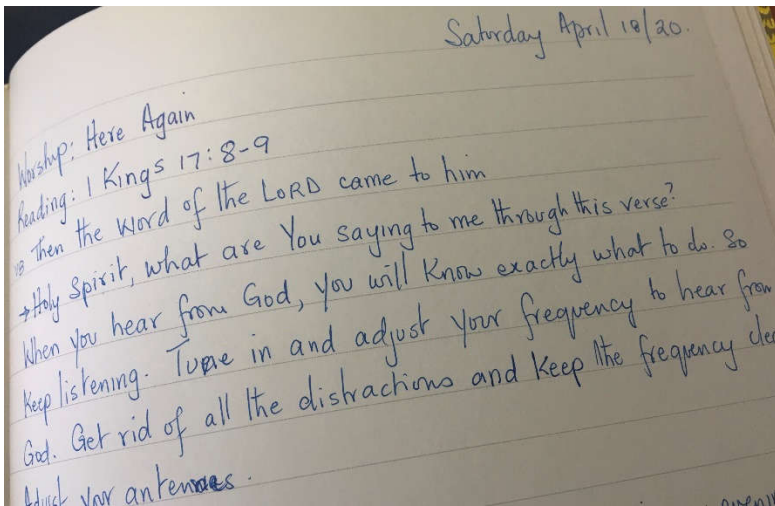 Saturday April 18/20.
Worship: Here Again
Reading: 1 Kings 17:8-9
v8 Then the word of the LORD came to him
→Holy Spirit, what are You saying to me through this verse?
When you hear from God, you will know exactly what to do. So
Keep listening. Tune in and adjust your frequency to hear from
God. Get rid of all the distractions and keep the frequency
Adjust your antennaes.